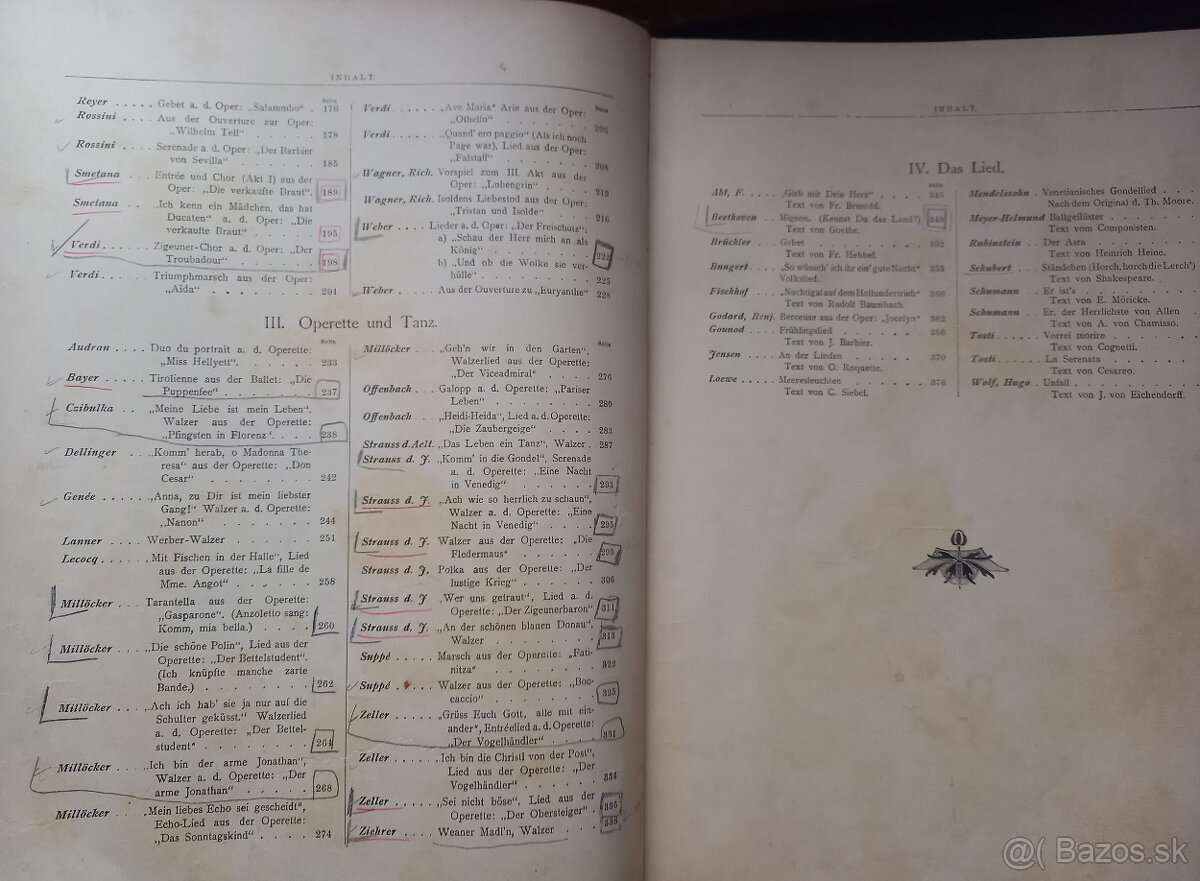 INHALT.
Seite
Reyer ..... Gebet a. d. Oper: „Salammbo“ . 176
Rossini .... Aus der Ouverture zur Oper:
„Wilhelm Tell“ ..... 178
Rossini .... Serenade a. d. Oper: „Der Barbier
von Sevilla“ ..... 185
Smetana ... Entrée und Chor (Akt I) aus der
Oper: „Die verkaufte Braut“. 189
Smetana ... „Ich kenn ein Mädchen, das hat
Ducaten“ a. d. Oper: „Die
verkaufte Braut“ .... 195
Verdi ..... Zigeuner-Chor a. d. Oper: „Der
Troubadour“ ..... 198
Verdi ..... Triumphmarsch aus der Oper:
„Aïda“ ....... 201
Seite
Verdi ...... „Ave Maria“ Arie aus der Oper:
„Othello“ ....... 206
Verdi ...... „Quand' ero paggio“ (Als ich noch
Page war), Lied aus der Oper:
„Falstaff“ ....... 208
Wagner, Rich. Vorspiel zum III. Akt aus der
Oper: „Lohengrin“ .... 212
Wagner, Rich. Isoldens Liebestod aus der Oper:
„Tristan und Isolde“ ... 216
Weber .... Lieder a. d. Oper: „Der Freischütz“:
a) „Schau der Herr mich an als
König“ ...... 222
b) „Und ob die Wolke sie ver-
hülle“ ...... 225
Weber .... Aus der Ouverture zu „Euryanthe“ 228
III. Operette und Tanz.
Seite
Audran .... Duo du portrait a. d. Operette:
„Miss Hellyett“. .... 233
Bayer ..... Tirolienne aus der Ballet: „Die
Puppenfee“ ...... 237
Czibulka .. „Meine Liebe ist mein Leben“.
Walzer aus der Operette:
„Pfingsten in Florenz“. ... 238
Dellinger .. „Komm' herab, o Madonna The-
resa“ aus der Operette: „Don
Cesar“ ....... 242
Genée ..... „Anna, zu Dir ist mein liebster
Gang!“ Walzer a. d. Operette:
„Nanon“ ...... 244
Lanner .... Werber-Walzer ...... 251
Lecocq .... „Mit Fischen in der Halle“, Lied
aus der Operette: „La fille de
Mme. Angot“ ...... 258
Millöcker ... Tarantella aus der Operette:
„Gasparone“. (Anzoletto sang:
Komm, mia bella.) .... 260
Millöcker ... „Die schöne Polin“, Lied aus der
Operette: „Der Bettelstudent“.
(Ich knüpfte manche zarte
Bande.) ........ 262
Millöcker ... „Ach ich hab' sie ja nur auf die
Schulter geküsst.“ Walzerlied
a. d. Operette: „Der Bettel-
student“ ........ 264
Millöcker .. „Ich bin der arme Jonathan“,
Walzer a. d. Operette: „Der
arme Jonathan“ ..... 268
Millöcker .. „Mein liebes Echo sei gescheidt“,
Echo-Lied aus der Operette:
„Das Sonntagskind“ .... 274
Seite
Millöcker ... „Geh'n wir in den Garten“,
Walzerlied aus der Operette:
„Der Viceadmiral“ .... 276
Offenbach .. Galopp a. d. Operette: „Pariser
Leben“ ........ 280
Offenbach .. „Heidi-Heida“, Lied a. d. Operette:
„Die Zaubergeige“ .... 283
Strauss d. Aelt. „Das Leben ein Tanz“, Walzer . 287
Strauss d. J. „Komm' in die Gondel“, Serenade
a. d. Operette: „Eine Nacht
in Venedig“ ...... 293
Strauss d. J. „Ach wie so herrlich zu schaun“,
Walzer a. d. Operette: „Eine
Nacht in Venedig“ .... 295
Strauss d. J. Walzer aus der Operette: „Die
Fledermaus“ ...... 299
Strauss d. J. Polka aus der Operette: „Der
lustige Krieg“ ...... 306
Strauss d. J. „Wer uns getraut“, Lied a. d.
Operette: „Der Zigeunerbaron“ 311
Strauss d. J. „An der schönen blauen Donau“,
Walzer ........ 313
Suppé ..... Marsch aus der Operette: „Fati-
nitza“ ........ 322
Suppé ..... Walzer aus der Operette: „Boc-
caccio“ ....... 325
Zeller ..... „Grüss Euch Gott, alle mit ein-
ander“, Entréelied a. d. Operette:
„Der Vogelhändler“ .... 331
Zeller ..... „Ich bin die Christl von der Post“,
Lied aus der Operette: „Der
Vogelhändler“ ...... 334
Zeller .... „Sei nicht böse“, Lied aus der
Operette: „Der Obersteiger“ . 336
Ziehrer ... Weaner Madl'n, Walzer ... 339
INHALT.
IV. Das Lied.
Seite
Abt, F. .... „Gieb mir Dein Herz“ ..... 345
Text von Fr. Brunold.
Beethoven .. Mignon. (Kennst Du das Land?) 348
Text von Goethe.
Brückler ... Gebet ......... 352
Text von Fr. Hebbel.
Bungert ... „So wünsch' ich ihr ein' gute Nacht“ 355
Volkslied.
Fischhof ... „Nachtigal auf dem Hollunderstrieb“ 360
Text von Rudolf Baumbach.
Godard, Benj. Berceuse aus der Oper: „Jocelyn“ 362
Gounod .... Frühlingslied ...... 366
Text von J. Barbier.
Jensen .... An der Linden ...... 370
Text von O. Roquette.
Loewe ..... Meeresleuchten ...... 376
Text von C. Siebel.
Mendelssohn . Venetianisches Gondellied ..
Nach dem Original d. Th. Moore.
Meyer-Helmund Ballgeflüster .......
Text vom Componisten.
Rubinstein .. Der Asra ........
Text von Heinrich Heine.
Schubert .. Ständchen (Horch, horch die Lerch')
Text von Shakespeare.
Schumann .. Er ist's ........
Text von E. Möricke.
Schumann .. Er, der Herrlichste von Allen .
Text von A. von Chamisso.
Tosti ..... Vorrei morire ......
Text von Cognetti.
Tosti ..... La Serenata .......
Text von Cesareo.
Wolf, Hugo . Unfall .........
Text von J. von Eichendorff.
@( Bazos.sk